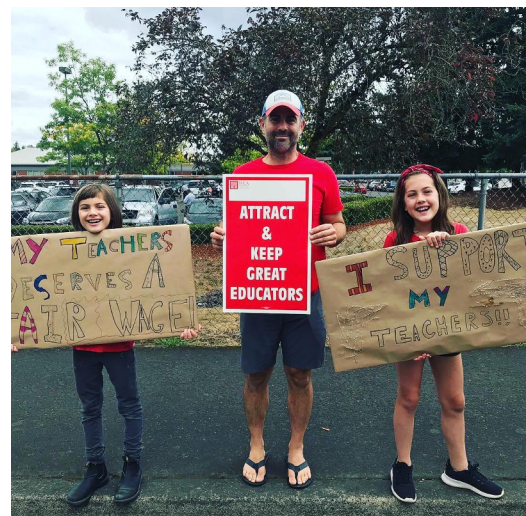 MY TEACHERS
DESERVES A
FAIR WAGE!
ATTRACT
&
KEEP
GREAT
EDUCATORS
I SUPPORT
MY
TEACHERS!!